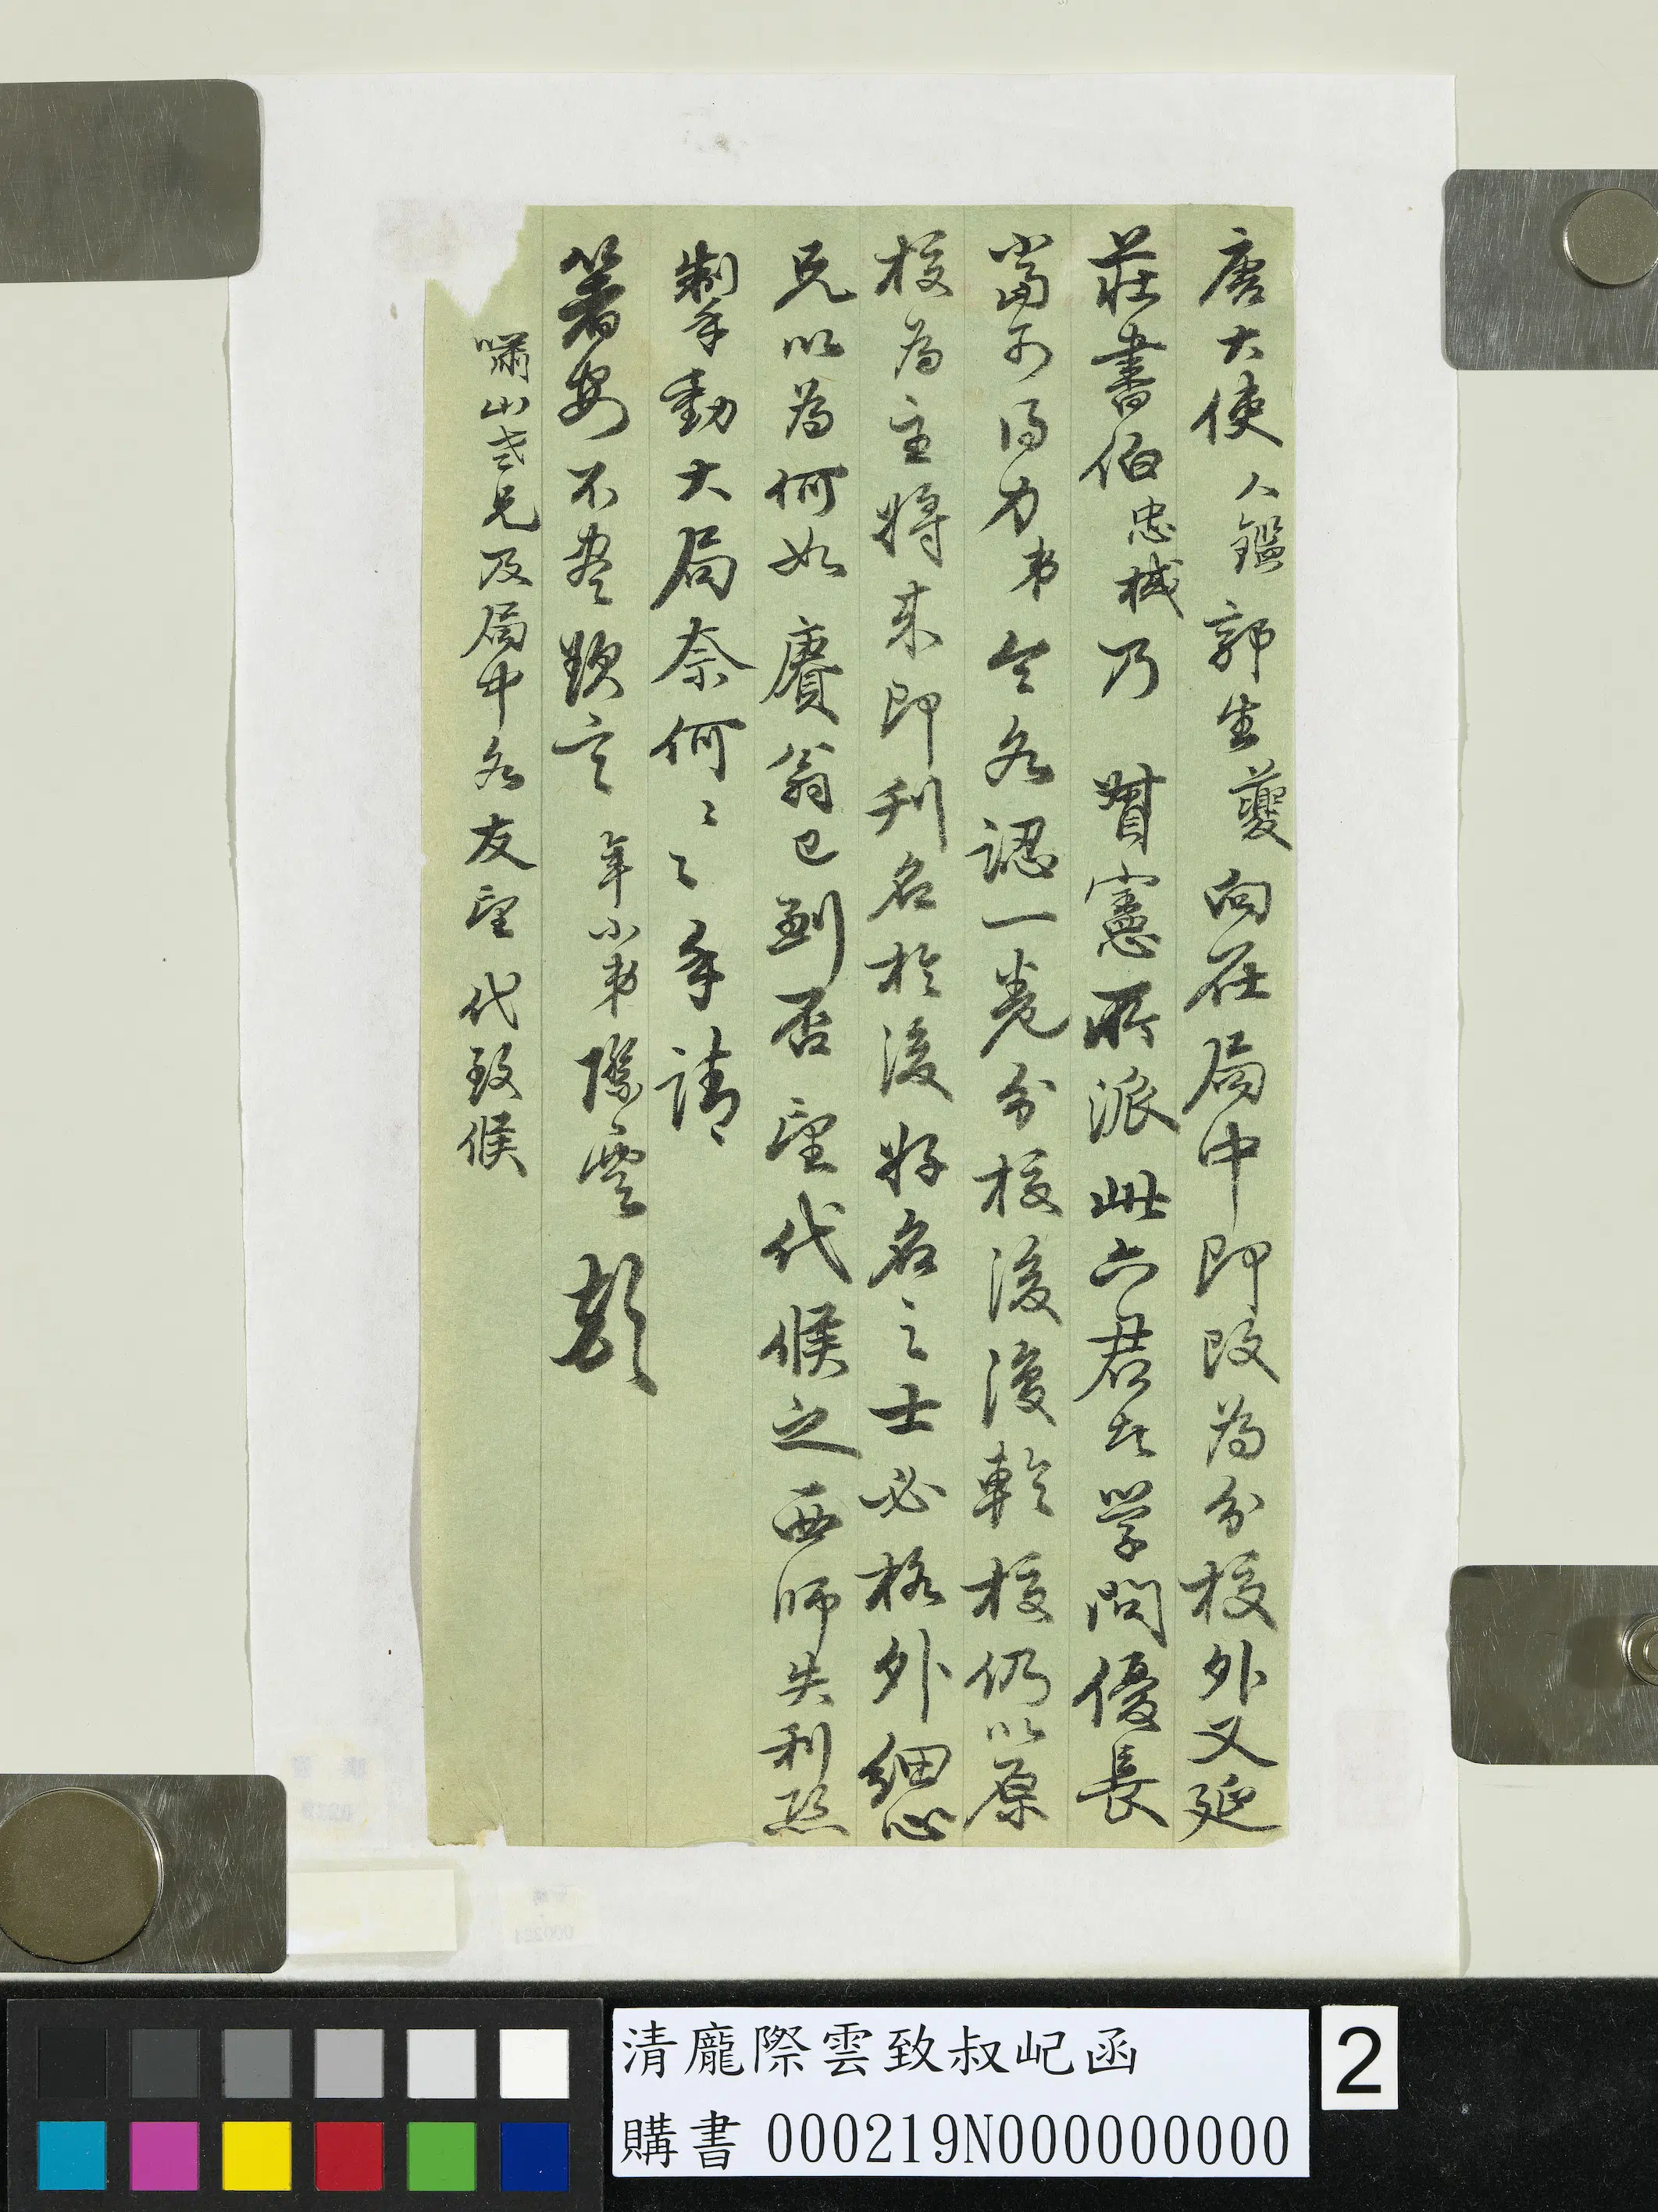 唐大使人鑑郭生夔向在局中即改為分校外又延
莊書伯忠棫乃 賢憲所派此六君者學問優長
當可得力弟令各認一卷分校後復輪校仍以原
校為主將來即刊名於後好名之士必格外細心
兄以為何如 賡翁已到否望代候之西師失利恐
掣動大局奈何奈何手請
箸安不盡欵言 年小弟際雲頓
嘯山老兄及局中各友望代致候
清龐際雲致叔屺函
購書 000219N000000000
2